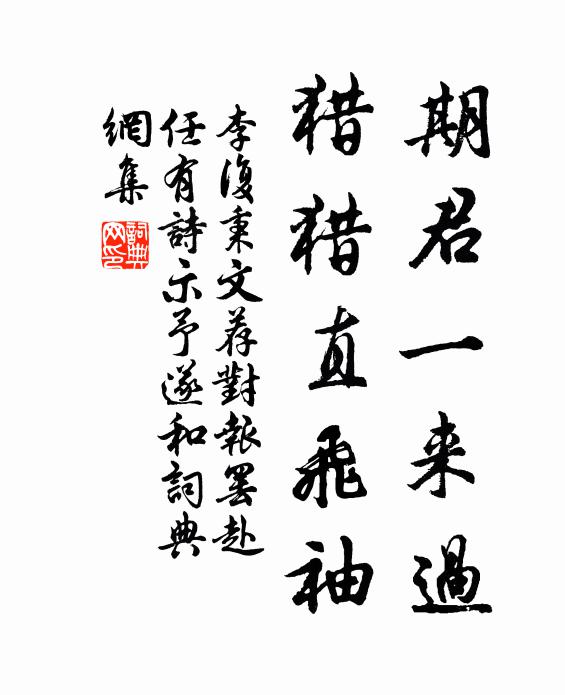 期君一来過
猎猎直飛袖
李復秉文荐對報罢赴
任有詩示予遂和詞典
網集
詞典网印